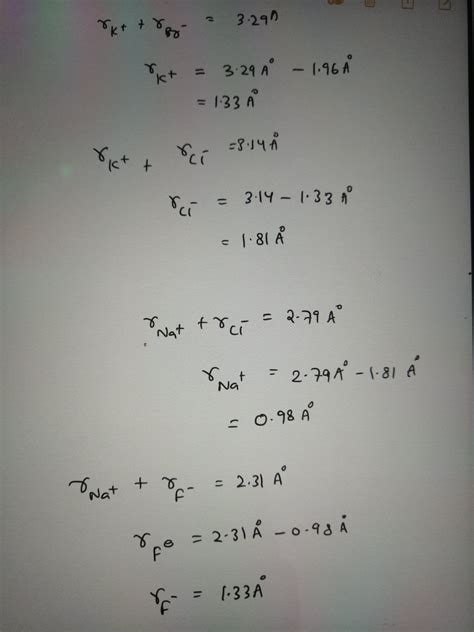 r_K+ + r_Br- = 3.29A
r_K+ = 3.29 A° - 1.96A°
= 1.33 A°
r_K+ + r_Cl- = 3.14 A°
r_Cl- = 3.14 - 1.33 A°
= 1.81 A°
r_Na+ + r_Cl- = 2.79 A°
r_Na+ = 2.79A° - 1.81 A°
= 0.98 A°
r_Na+ + r_F- = 2.31 A°
r_F⊖ = 2.31 A° - 0.98 A°
r_F- = 1.33A°